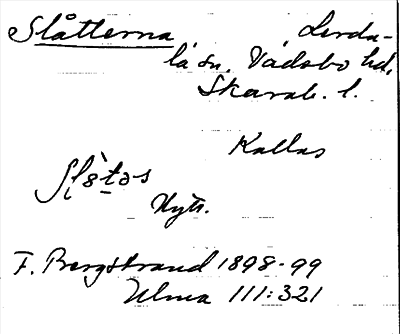 Slåtterna Lerda-
la sn, Vadsbo hd,
Skarab. l.
Kallas
Nytr.
F. Bergstrand 1898-99
Ulma 111:321